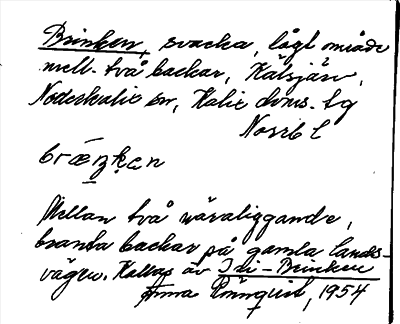 Brinken, svacka, lågt område
mell. två backar, Kälsjärv,
Nederkalix sn, Kalix doms. tg
Norrb l
bræŋkən
Mellan två näraliggande,
branta backar på gamla lands-
vägen. Kallas äv Isi-Brinken
Anna Rönnqvist, 1954